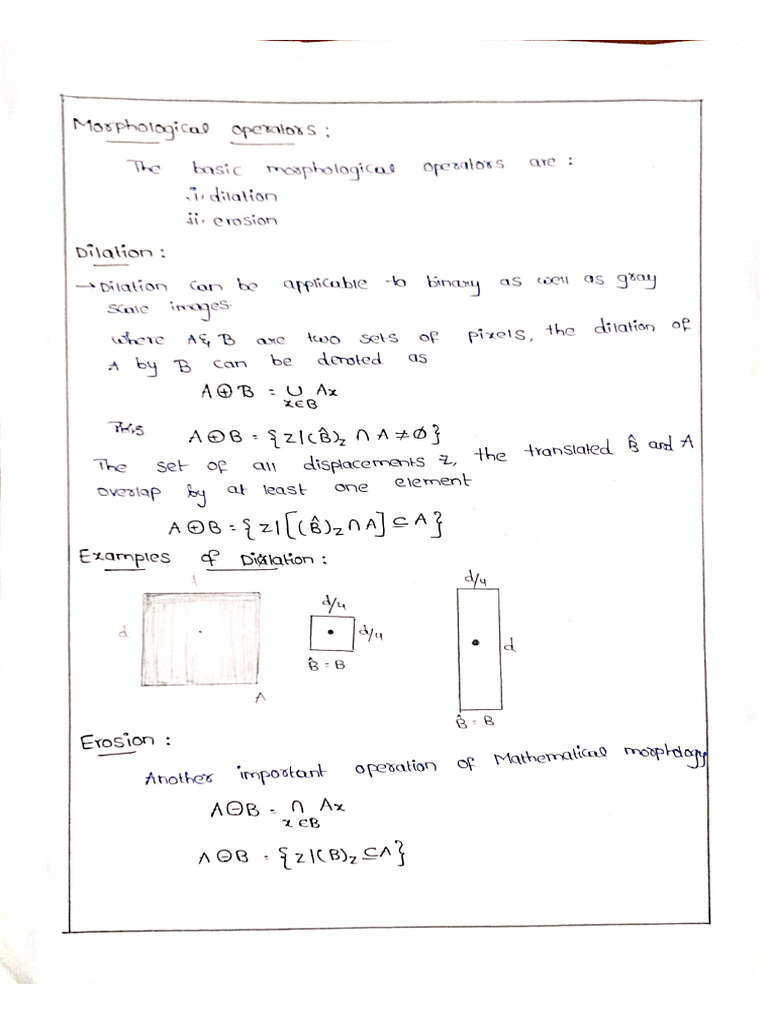 Morphological operators :
The basic morphological operators are :
i. dilation
ii. erosion
Dilation :
→ Dilation can be applicable to binary as well as gray
scale images.
where A & B are two sets of pixels, the dilation of
A by B can be denoted as
A ⊕ B = ∪ Ax
x∈B
A ⊕ B = {z|(B̂)z ∩ A ≠ ∅}
The set of all displacements z, the translated B̂ and A
overlap by at least one element
A ⊕ B = {z|[(B̂)z ∩ A] ⊆ A}
Examples of Dialation :
d
A
d/4
d/4
B̂ = B
d/4
d
B̂ = B
Erosion :
Another important operation of Mathematical morphology
A ⊖ B = ∩ Ax
x∈B
A ⊖ B = {z|(B)z ⊆ A}